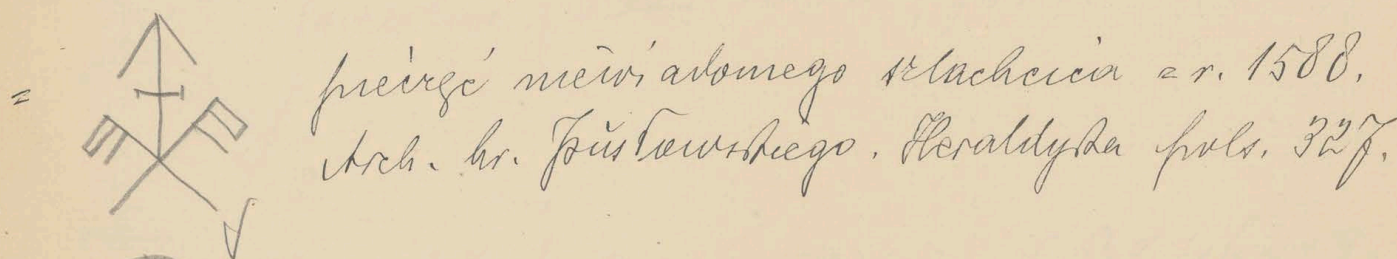 pieczęć niewiadomego szlachcica z r. 1588.
Arch. hr. Pusłowskiego. Heraldyka pols. 327.